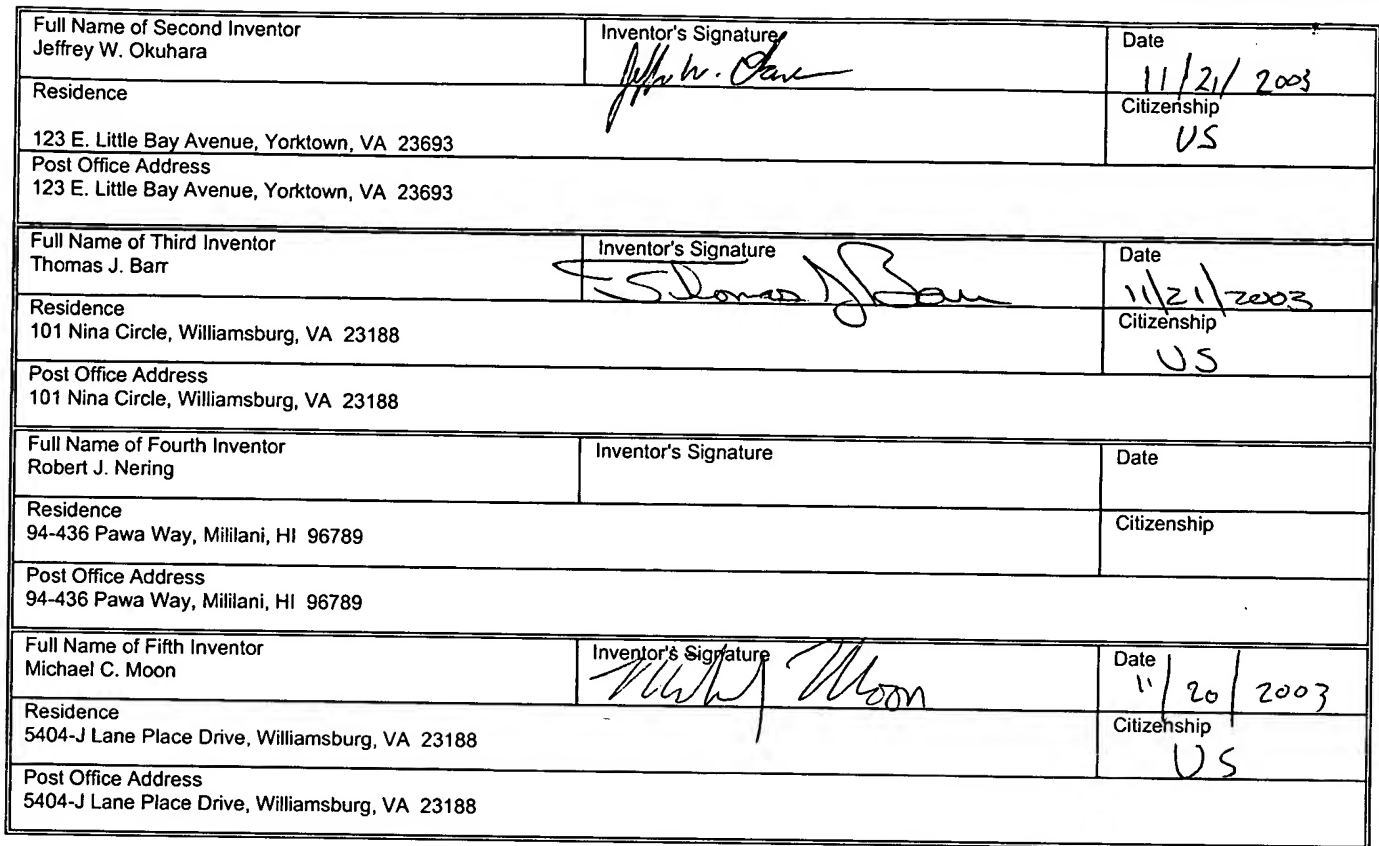 Full Name of Second Inventor
Jeffrey W. Okuhara
Inventor's Signature
Date
11/21/2003
Residence
123 E. Little Bay Avenue, Yorktown, VA 23693
Citizenship
US
Post Office Address
123 E. Little Bay Avenue, Yorktown, VA 23693
Full Name of Third Inventor
Thomas J. Barr
Inventor's Signature
Thomas J Barr
Date
11/21/2003
Residence
101 Nina Circle, Williamsburg, VA 23188
Citizenship
US
Post Office Address
101 Nina Circle, Williamsburg, VA 23188
Full Name of Fourth Inventor
Robert J. Nering
Inventor's Signature
Date
Residence
94-436 Pawa Way, Mililani, HI 96789
Citizenship
Post Office Address
94-436 Pawa Way, Mililani, HI 96789
Full Name of Fifth Inventor
Michael C. Moon
Inventor's Signature
Moon
Date
11/20/2003
Residence
5404-J Lane Place Drive, Williamsburg, VA 23188
Citizenship
US
Post Office Address
5404-J Lane Place Drive, Williamsburg, VA 23188